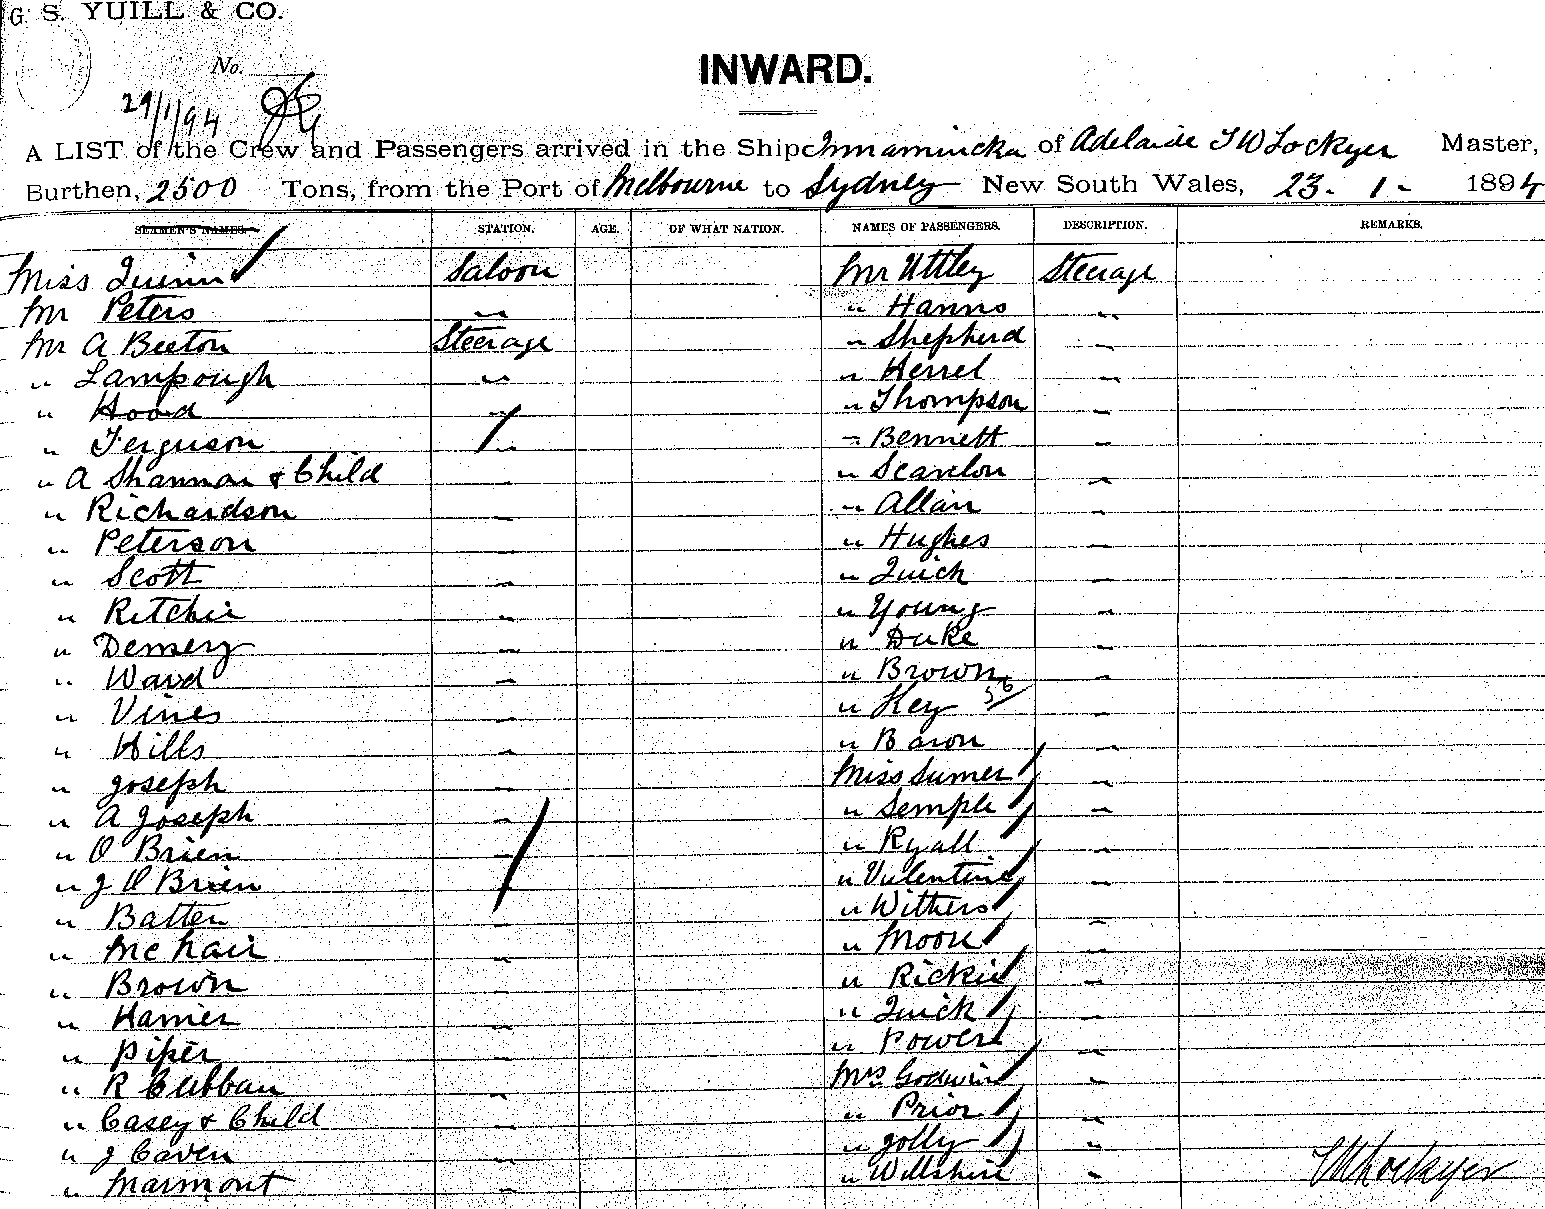 G. S. YUILL & CO.
No.
INWARD.
29/1/94
A LIST of the Crew and Passengers arrived in the Ship Innamincka of Adelaide T W Lockyer Master,
Burthen, 2500 Tons, from the Port of Melbourne to Sydney New South Wales, 23 - 1 - 1894
SEAMEN'S NAMES. STATION. AGE. OF WHAT NATION. NAMES OF PASSENGERS. DESCRIPTION. REMARKS.
Miss Quinn Saloon Mr Uttley Steerage
Mr Peters " " Hanns "
Mr A Beeton Steerage " Shepherd "
" Lampough " " Herrel "
" Hood " " Thompson "
" Ferguson " " Bennett "
" A Shannan & Child " " Scanlon "
" Richardson " " Allan "
" Peterson " " Hughes "
" Scott " " Quick "
" Ritchie " " Young "
" Demery " " Duke "
" Ward " " Brown "
" Vines " " Key 36 "
" Hills " " Baron "
" Joseph " Miss Sumer "
" A Joseph " " Semple "
" O Brien " " Ryall "
" J O Brien " " Valentine "
" Batten " " Withers "
" McNair " " Moon "
" Brown " " Rickie "
" Hamer " " Quick "
" Piper " " Power "
" R Cubban " Mrs Godwin "
" Casey & Child " " Prior "
" J Caven " " Jolly "
" Marmont " " Willshire "
T W Lockyer